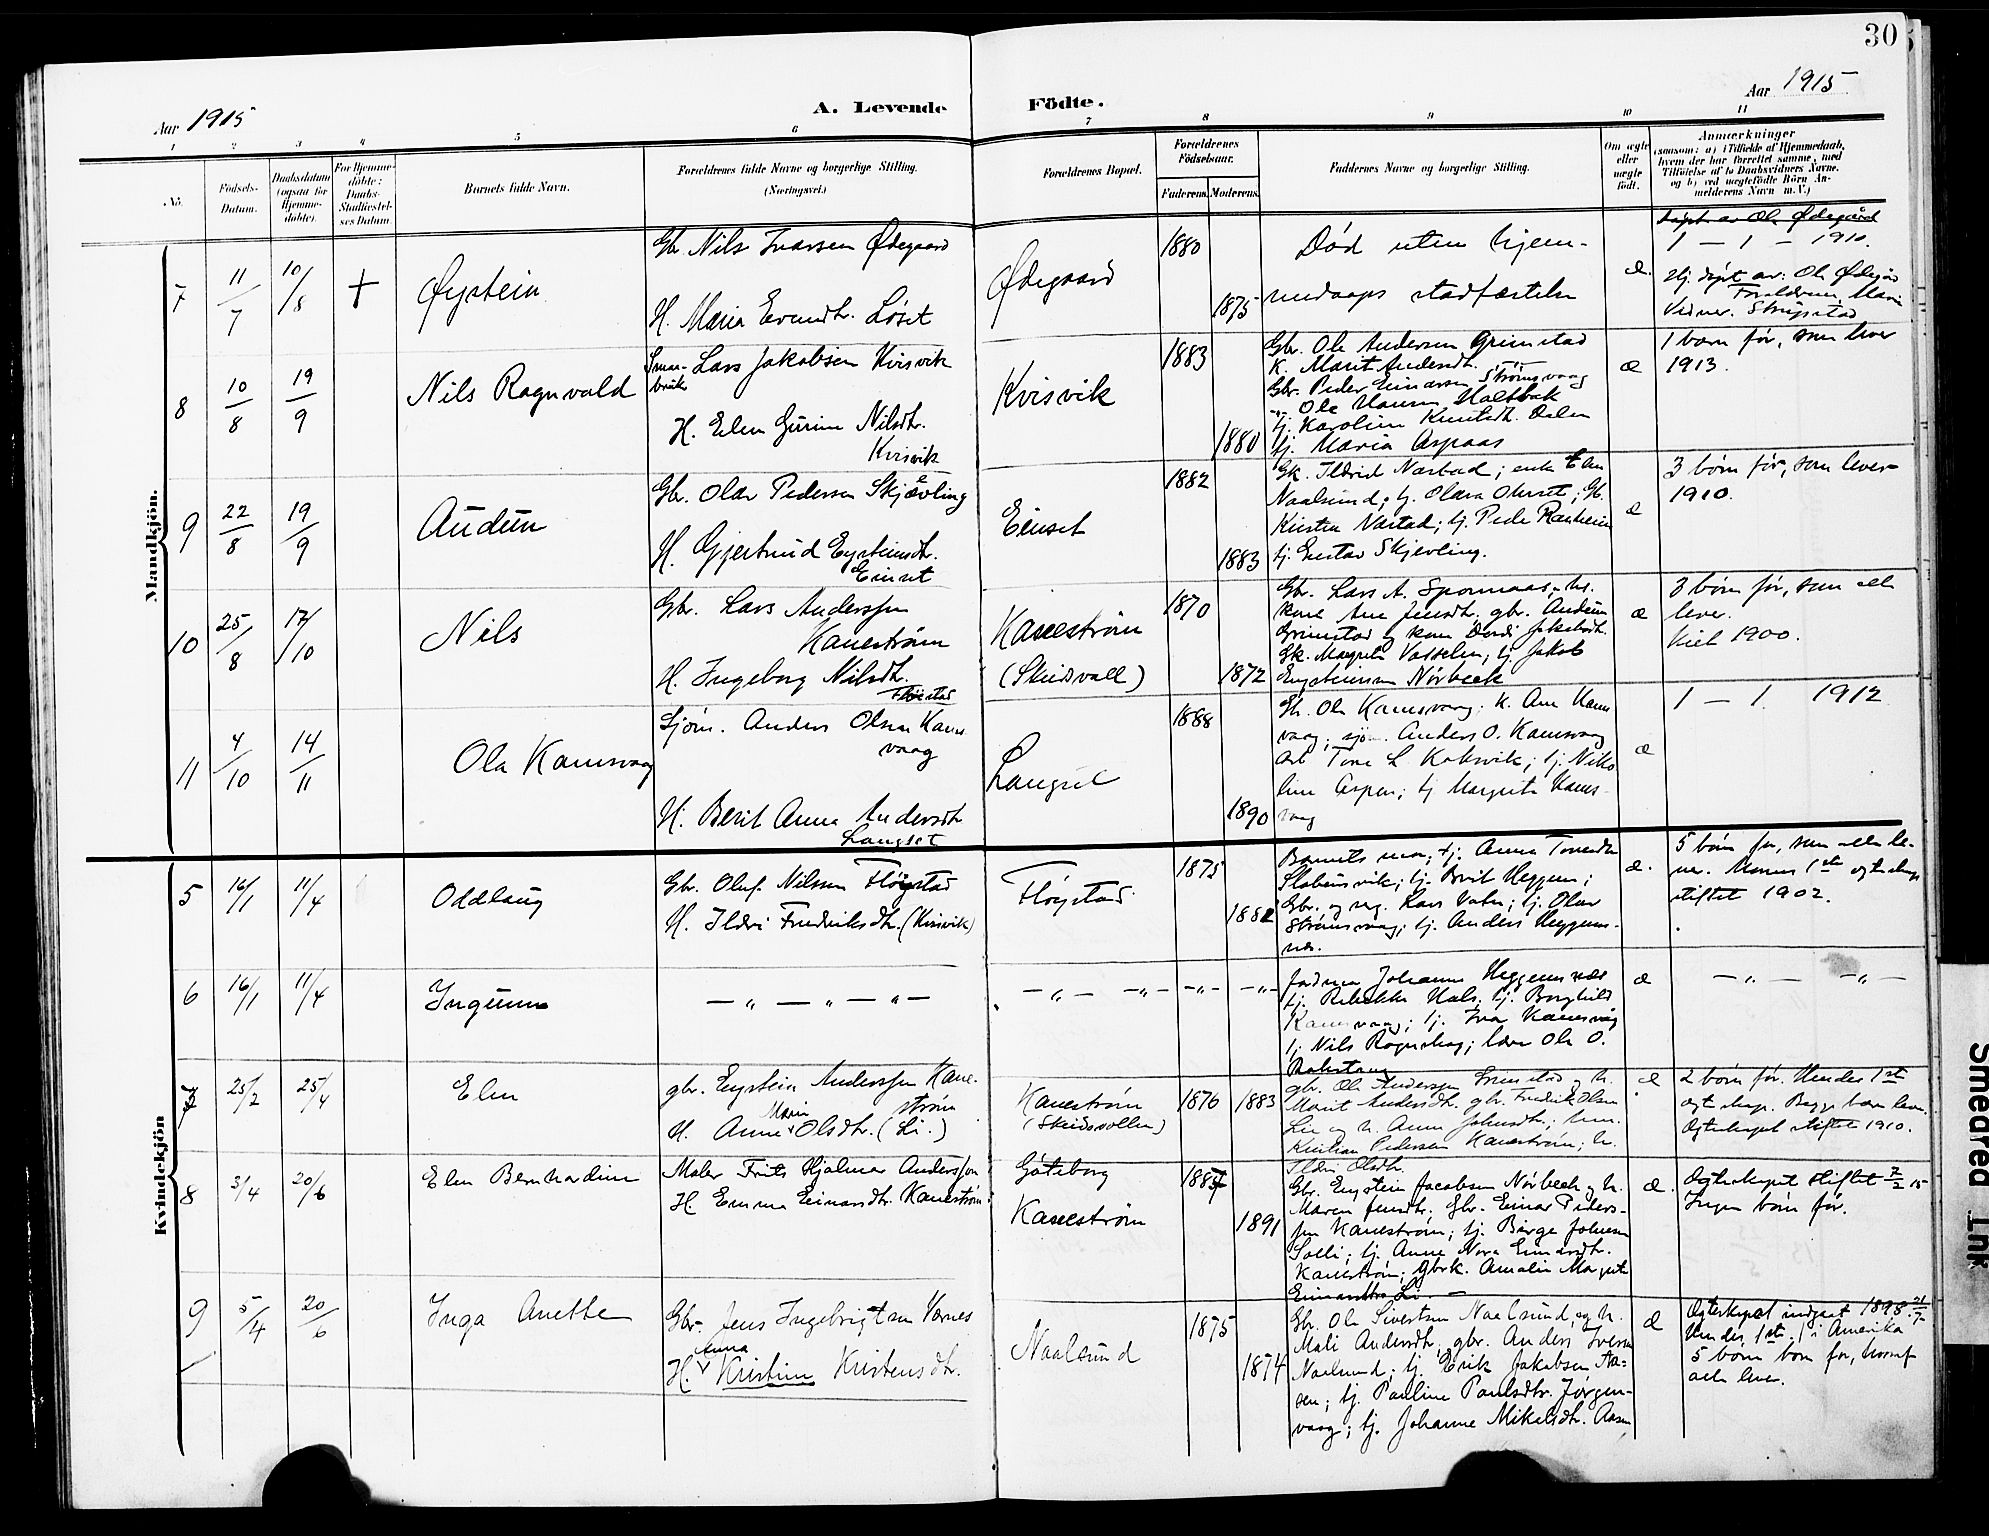 30
Aar 1915
A. Levende
Födte.
Aar 1915
1 2 3 4 5 6 7 8 9 10 11
No.
Födsels-Datum.
Daabsdatum (ogsaa for Hjemme-döbte).
For Hjemme-döbte: Daabs-Stadfæstelses Datum
Barnets fulde Navn.
Forældrenes fulde Navne og borgerlige Stilling. (Næringsvei.)
Forældrenes Bopæl.
Forældrenes Födselsaar.
Faderens. Moderens.
Faddernes Navne og borgerlige Stilling.
Om ægte eller uægte födt.
Anmærkninger
(saasom: a) i Tilfælde af Hjemmedaab, hvem der har forrettet samme, med Tilföielse af to Daabsvidners Navne, og b) ved uægtefödte Börn Anmelderens Navn m. V.)
Mandkjön.
7 11/7 10/8 + Øystein
Gbr. Nils Ivarsen Ødegaard
H. Maria Evendtr. Løset
Ødegaard
1880 1875
Død uten hjem-
medaaps stadfæstelse
æ.
1 — 1 — 1910.
Hj. døpt av: Ole Ødegård
Vidner. Forældrene, Marie
8 10/8 19/9 Nils Ragnvald
Smaabruker Lars Jakobsen Kvisvik
H. Elen Gurine Nilsdtr.
Kvisvik
Kvisvik
1883 1880
Gbr. Ole Andersen Grimstad
K. Marit Andersdt.
Gbr. Peder Einarsen Strømsvaag
-"- Ole Hansen Holtbak
tj. Karoline Knutsdt. Dalen
tj. Maria Aspaas
æ
1 barn før, som lever
1913.
9 22/8 19/9 Audun
Gbr. Olav Pedersen Skjevling
H. Gjertrud Eysteinsdtr.
Einset
Einset
1882 1883
Gk. Ildrid Næstad; enke Elen
Naalsund; tj. Olava Oterset; Gb.
Kirsten Næstad; tj. Peder Ranheim
tj. Gustav Skjevling.
æ
3 børn før, som lever
1910.
10 25/8 17/10 Nils
Gbr. Lars Anderssen
Kanestrøm
H. Ingeborg Nilsdtr.
Fløistad
Kanestrøm
(Skeidsvoll)
1870 1872
Gbr. Lars A. Sponnaas, hs.
kone Ane Jensdt., gbr. Audun
Grimstad og kone Dordi Jakobsdt.
Gk. Magrete Vasselen, tj. Jakob
Eysteinsen Nørbeck
æ
3 børn før, som alle
lever.
Viet 1900.
11 4/10 14/11 Ola Kamsvaag
Sjöm. Anders Olsen Kams
vaag
H. Berit Anna Andersdtr.
Langset
Langset
1888 1890
Gb. Ole Kamsvaag; K. Ane Kams
vaag; sjöm. Anders O. Kamsvaag
arb. Tore L. Koksvik; tj. Niko-
line Aspen; tj Margrete Kams-
vaag
æ
1 — 1. 1912
Kvindekjön
5 16/1 11/4 Oddlaug
Gbr. Oluf Nilssen Fløystad
H. Ildri Fredriksdtr. (Kvisvik)
Fløystad
1875 1882
Barnets mor; tj. Anna Torendtr
Stabensvik; tj. Brit Heggem;
Gbr. og seg. Lars Vatn; tj. Olav
Strømsvaag; tj. Anders Heggems-
næs.
æ.
5 børn før, som alle le-
ver. Mannens 1ste ægteskap
stiftet 1902.
6 16/1 11/4 Ingunn
— " — " — " —
— " — — " — — " — — " —
Jordmor Johanne Heggemsnæs
tj. Rebekka Hals, tj. Borghild
Kamsvaag; tj. Ivar Kamsvåg
tj. Nils Ragnskog; lærer Ole O.
Rokstang
æ
— " — — " —
7 25/2 25/4 Elen
gbr. Eystein Anderssen Kane-
strøm
H. Anne Marie Olsdtr. (Li.)
Kanestrøm
(Skeidsvollen)
1876 1883
gbr. Ole Anderssen Grimstad og h.
Marit Andersdtr. gbr. Fredrik Olsen
Lie og h. Anna Johnsdtr.;
Kristian Pedersen Kanestrøm; h.
Ildri Olsdtr.
æ
2 børn før. Hendes 1ste
ægteskap. Begge børn lever.
Ægteskapet stiftet 1910.
8 3/4 20/6 Elen Bernhardine
Maler Frits Hjalmar Andersson
H. Emma Einarsdtr. Kanestrøm
Göteborg
Kanestrøm
1887 1891
Gbr. Eystein Jacobsen Nørbech og h.
Maren Jensdtr. Gbr. Einar Peders-
sen Kanestrøm; tj. Børge Johnsen
Solli; tj. Anne Nora Einarsdtr.
Kanestrøm; Gbrk. Amalie Margrete
Einarsdtr. Li. —
æ.
Ægteskapet stiftet 7/2 15
Ingen børn før.
9 5/4 20/6 Inga Anette
Gbr. Jens Ingebrigtsen Vernes
H. Anna Kristine Kristensdtr.
Naalsund
1875 1874
Gbr. Ole Sivertsen Naalsund, og h.
Mali Andersdtr, gbr. Anders Iversen
Naalsund; tj. Erik Jakobsen Aa-
sen; tj. Pauline Paulsdtr. Jørgen-
vaag; tj. Johanne Mikalsdtr. Aasen
æ
Ægteskapet indgaat 1898 21/7.
Hendes 1ste. i Amerika
5 børn før, hvoraf
alle lever.
Smeared Ink